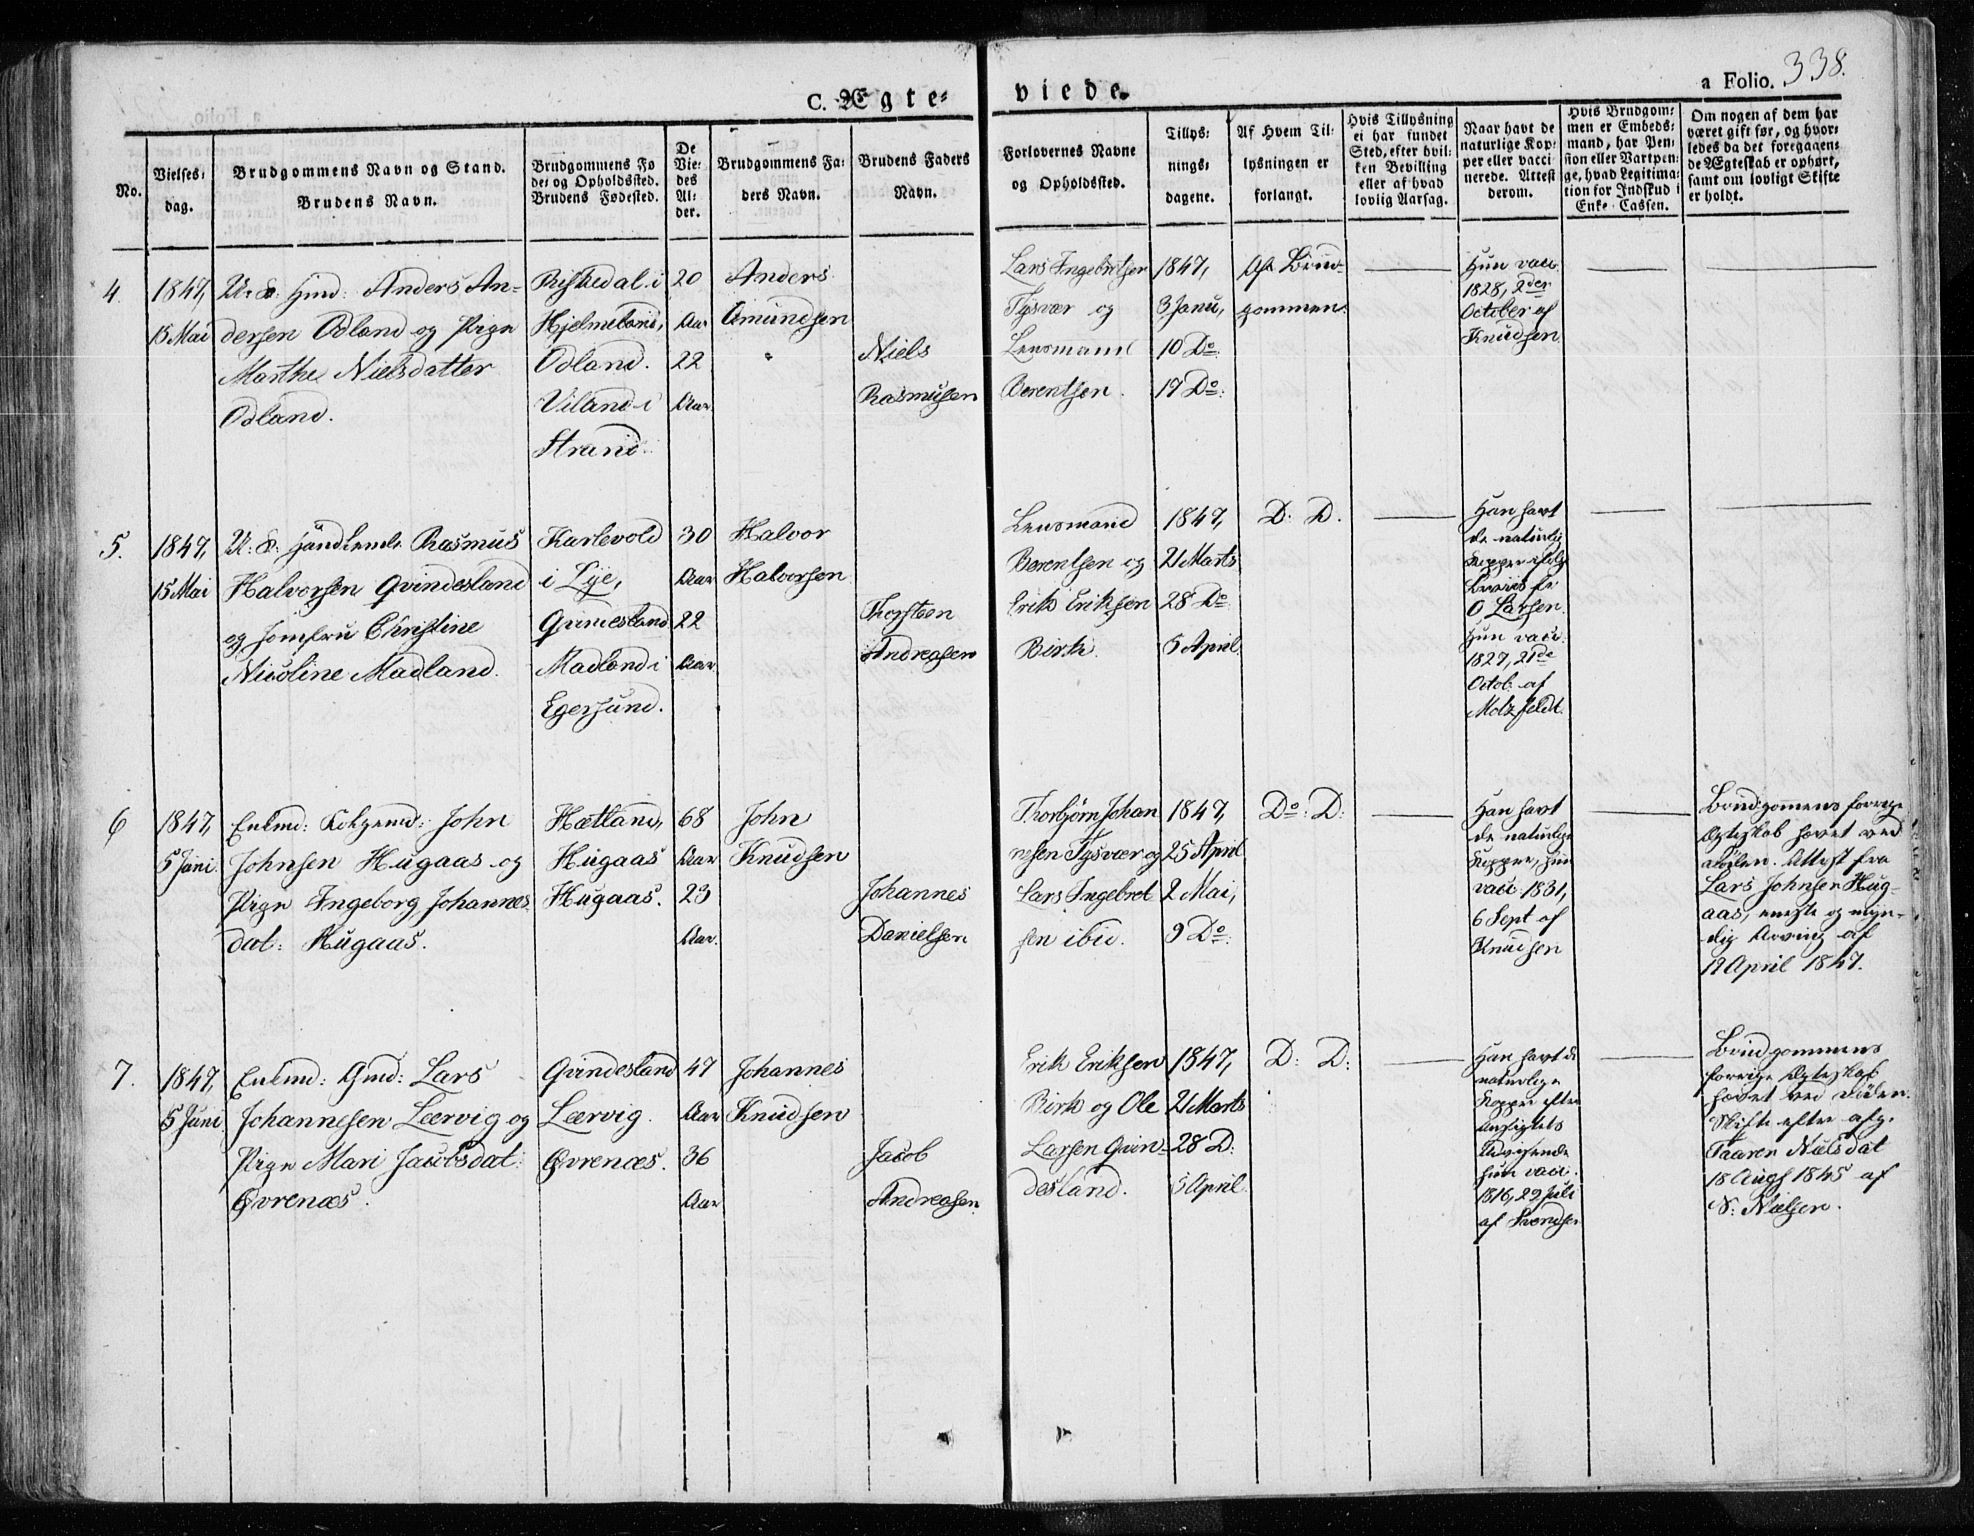 C. Ægte-
viede.
a Folio. 338.
No.
Vielses-
dag.
Brudgommens Navn og Stand.
Brudens Navn.
Brudgommens Fø
de- og Opholdssted.
Brudens Fødested.
De
Vie-
des
Al-
der.
Brudgommens Fa-
ders Navn.
Brudens Faders
Navn.
Forlovernes Navne
og Opholdssted.
Tillys-
nings-
dagene.
Af Hvem Til-
lysningen er
forlangt.
Hvis Tillysning
ei har fundet
Sted, efter hvil-
ken Bevilling
eller af hvad
lovlig Aarsag.
Naar havt de
naturlige Kop-
per eller vacci
nerede. Attest
derom.
Hvis Brudgom-
men er Embeds-
mand, har Pen-
sion eller Vartpen-
ge, hvad Legitima-
tion for Indskud i
Enke-Cassen.
Om nogen af dem har
været gift før, og hvor-
ledes da det foregaaen-
de Ægteskab er ophørt,
samt om lovligt Skifte
er holdt.
4.
1847,
15 Mai
Anders An-
dersen Odland og Pige
Marthe Nielsdatter
Odland.
Riskedal i
Hjelmeland,
Odland.
Viland i
Strand.
20
Aar
22
Aar
Anders
Amundsen
Niels
Rasmusen
Lars Ingebretsen
Tysvær og
Lensmand
Berentsen.
1847,
3 Janu,
10 Do
17 Do:
Af Brud-
gommen.
Hun vacc.
1828, 2den
October af
Knudsen
5.
1847,
15 Mai
U: S: Handlende Rasmus
Halvorsen Qvindesland
og Jomfru Christine
Nicoline Madland.
Karlevold
i Lye,
Qvindesland
Madland i
Egersund.
30
Aar
22
Aar
Halvor
Halvorsen
Thorsteen
Andreasen
Lensmand
Berentsen og
Erik Eriksen
Birk.
1847,
21 Marts
28 Do
5 April.
D: D.
Han havt
de naturlig
Kopper ifølg
Beviis fr
O Larsen.
Hun vacc.
1827, 21de
Octob. af
Motzfeldt.
6
1847,
5 Juni.
Enkmd: John
Johnsen Hugaas og
Pige Ingeborg Johannes
dat: Hugaas.
Hætland,
Hugaas
Hugaas.
68
Aar
23
Aar.
John
Knudsen
Johannes
Danielsen
Thorbjørn Johan
nesen Tysvær og
Lars Ingebret
sen ibid.
1847,
25 April
2 Mai,
9 Do:
Do: D:
Han havt
de naturlige
Kopper, hun
vacc 1831,
6 Sept af
Knudsen
Brudgomens forrige
Ægteskab hævet ved
Døden. Attest fra
Lars Johnsen Hug-
aas, eneste og myn-
dig Arving af
12 April 1847.
7.
1847,
5 Juni
Enkmd: Gmd: Lars
Johannesen Lærvig og
Pige Mari Jacobsdat:
Øvrenæs.
Qvindesland
Lærvig.
Øvrenæs.
47
Aar
36
Aar
Johannes
Knudsen
Jacob
Andreasen
Erik Eriksen
Birk og Ole
Larsen Qvin-
desland.
1847,
21 Marts
28 D:
5 April.
D: D:
Han havt de
naturlige
Kopper efter
Ansigtets
Udvisende
hun vacc.
1816, 29 Juli
af Svendsen
Brudgommens
forrige Ægteskab
hævet ved Døden.
Skifte efter afg.
Taaren Nielsdat
18 Augs 1845 af
N: Nielsen.